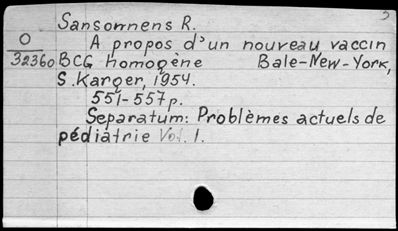 5
Sansonnens R.
O A propos d'un nouveau vaccin
32360 BCG homogène Bale-New-York,
S. Karger, 1954.
551-557 p.
Separatum: Problèmes actuels de
pédiatrie Vol. 1.